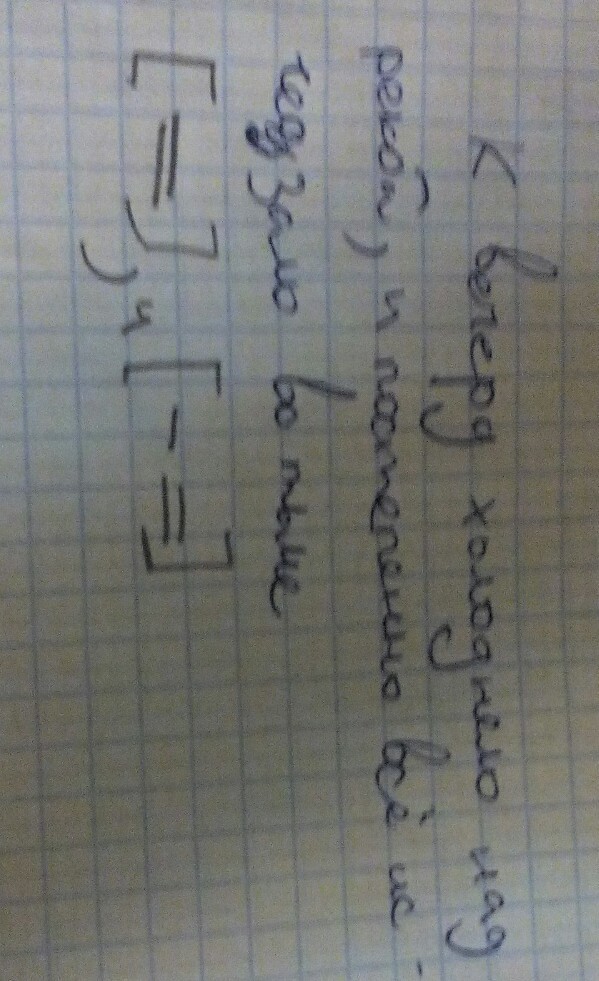 К вечеру холоднело над
рекой, и постепенно всё ис-
чедзало во тьме
[=], и [- =]